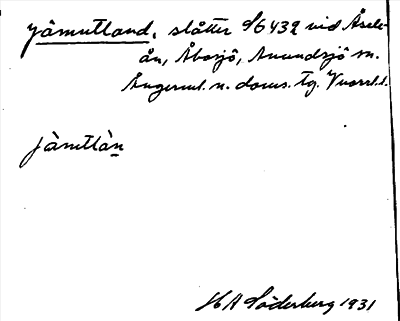 Jämtland, slåtter S6432 vid Åsele-
ån, Åbosjö, Anundsjö sn.
Ångerml. n. doms. tg. Vnorrl. l.
jàmtlàn
HA Söderberg 1931